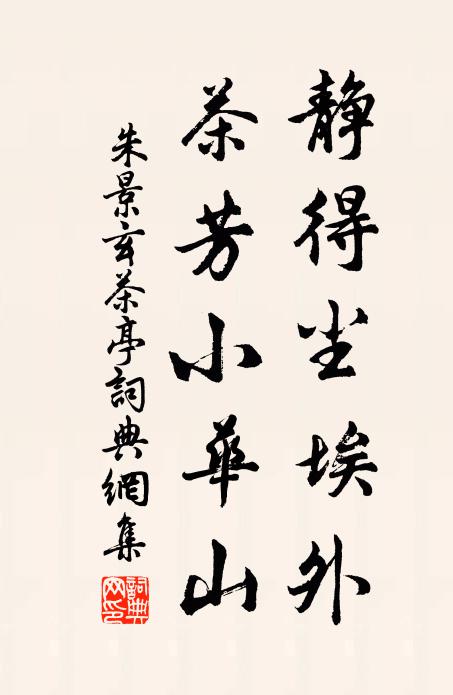 静得尘埃外
茶芳小華山
朱景玄茶亭詞典網集
詞典网印